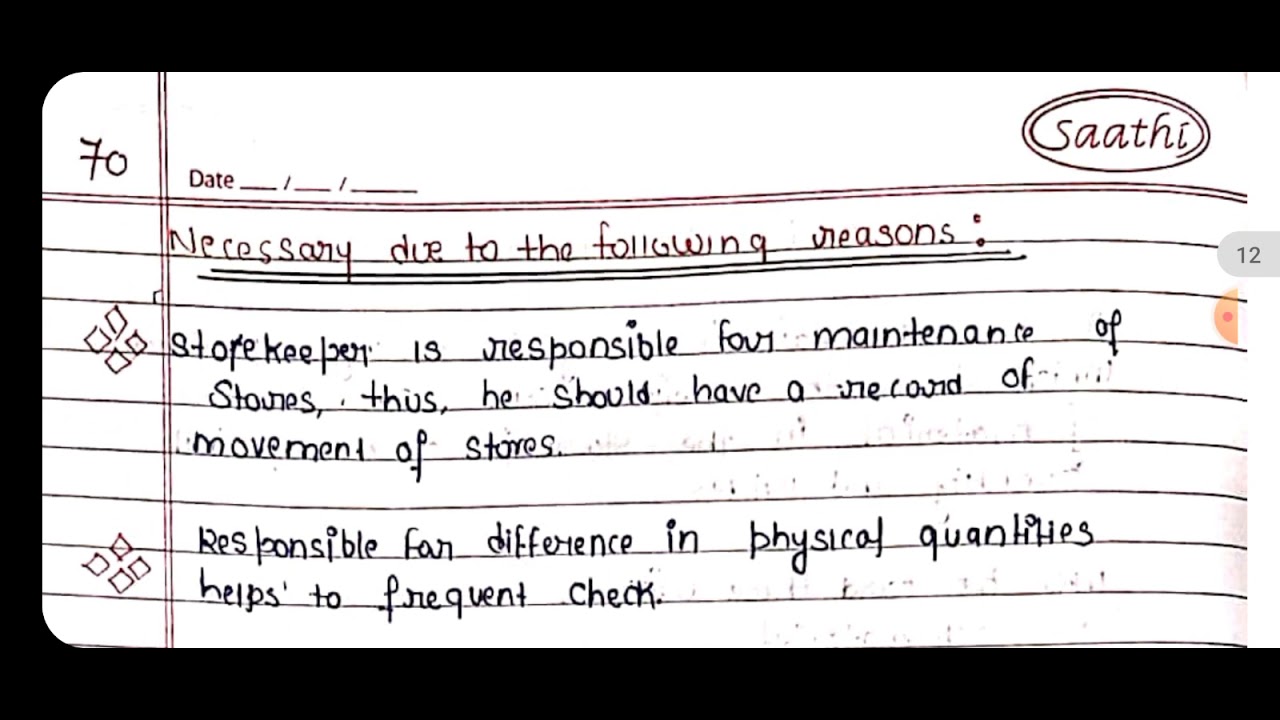 Saathi
70
Date __/__/____
Necessary due to the following reasons :
Storekeeper is responsible for maintenance of
Stores, thus, he should have a record of
movement of stores.
Responsible for difference in physical quantities
helps to frequent check.
12